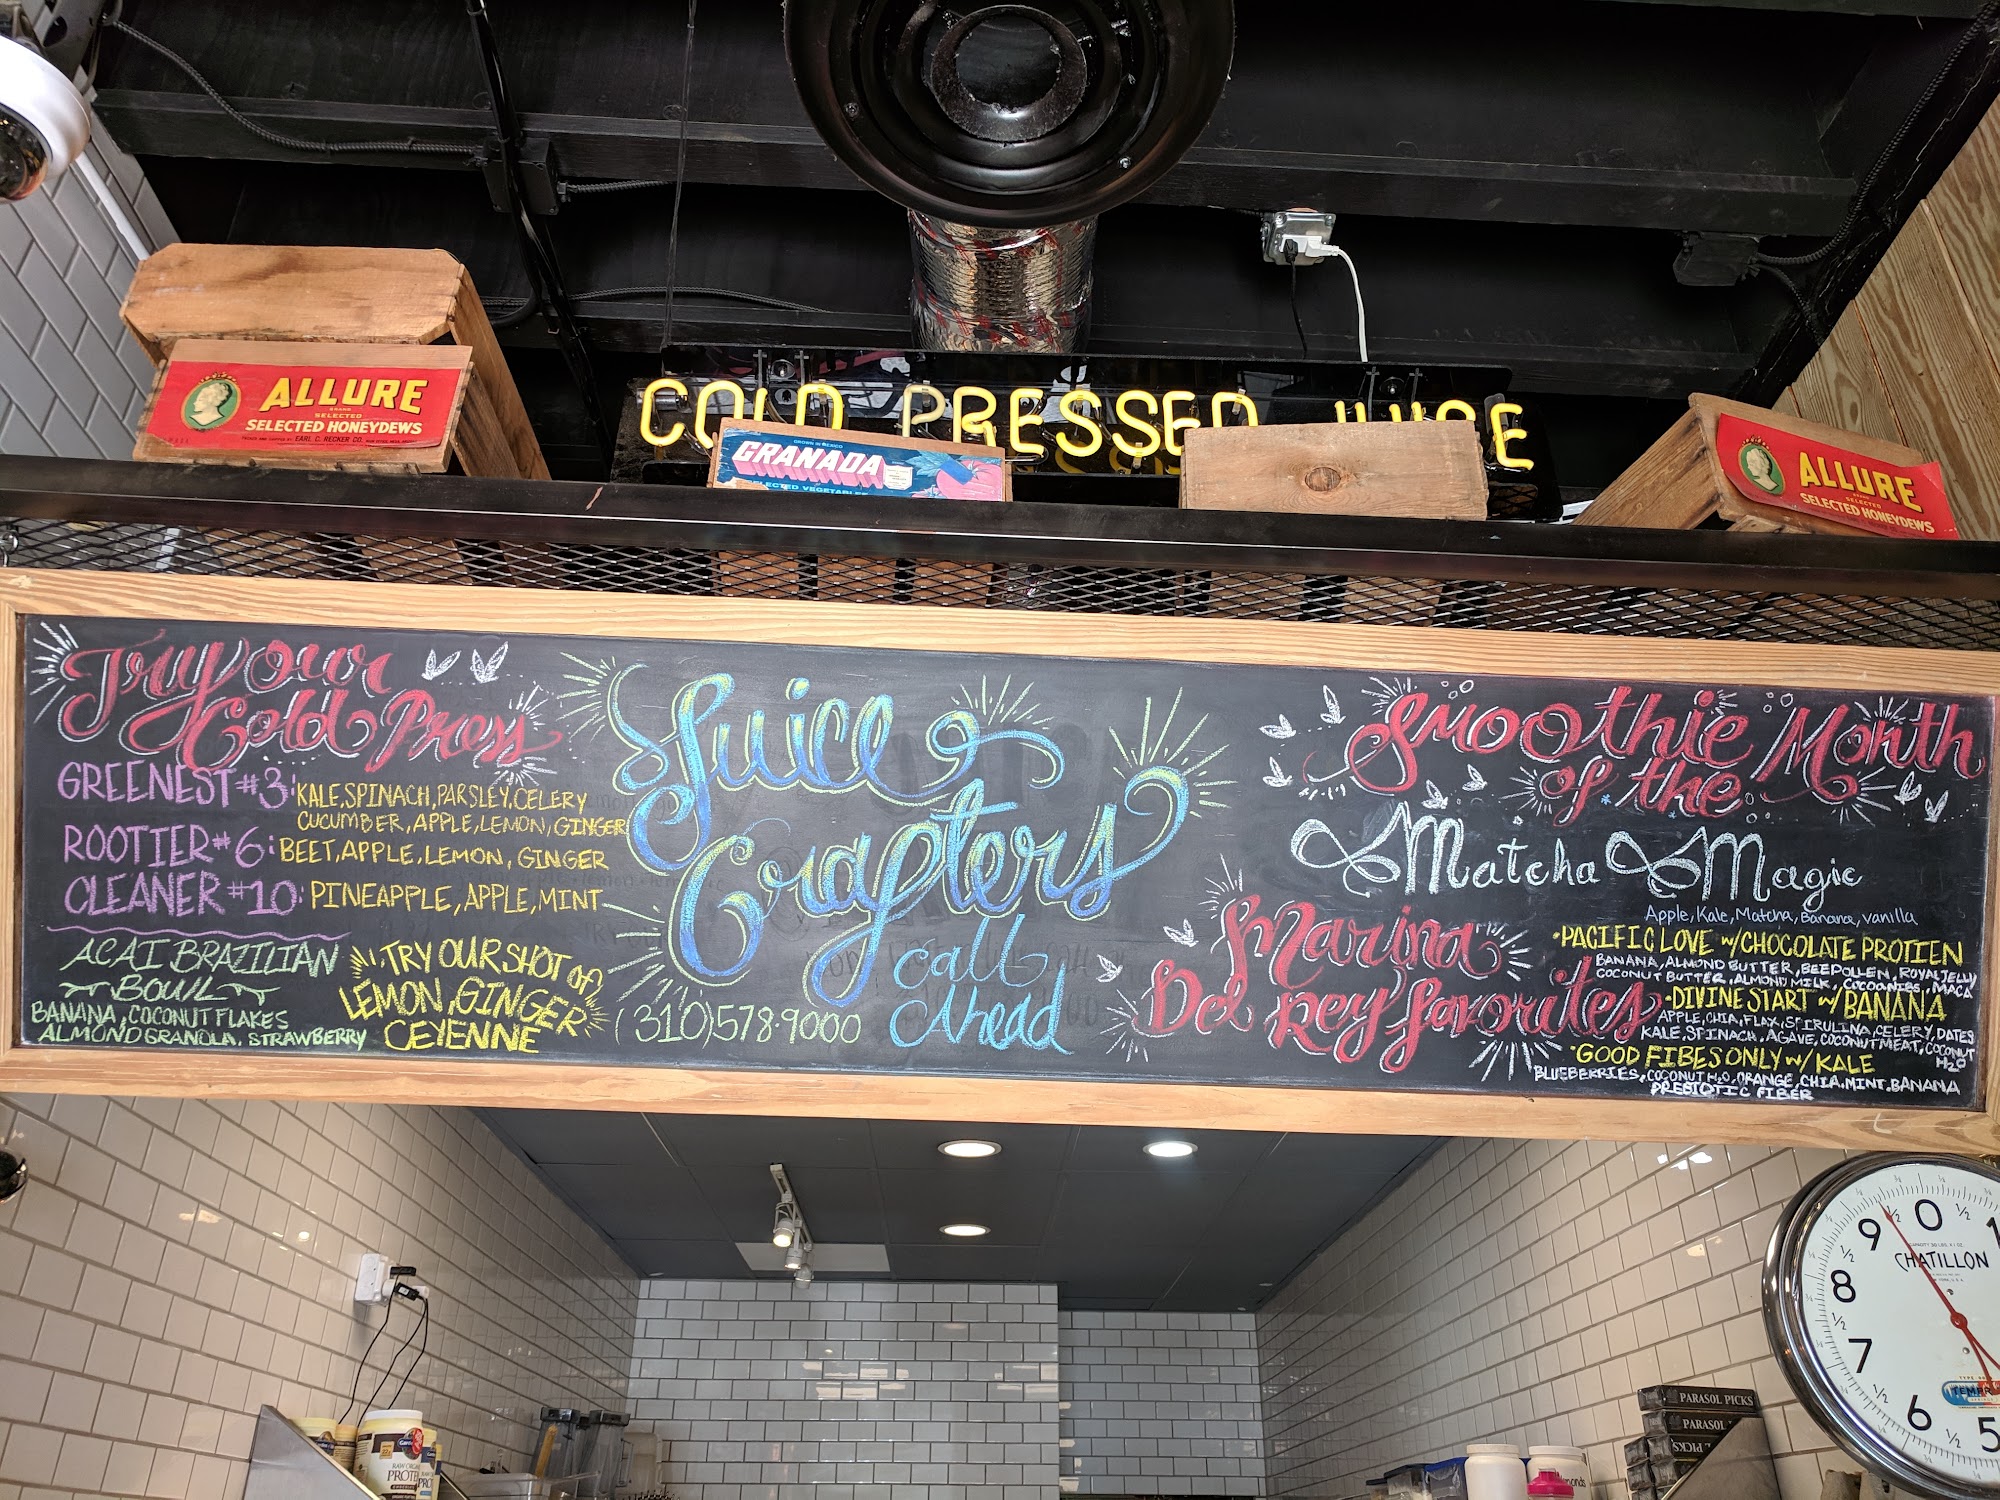 COLD PRESSED JUICE
ALLURE
BRAND
SELECTED
SELECTED HONEYDEWS
EARL C. RECKER CO.
GROWN IN MEXICO
GRANADA
SELECTED VEGETABLES
ALLURE
SELECTED
SELECTED HONEYDEWS
Try Our
Cold Press
GREENEST #3: KALE, SPINACH, PARSLEY, CELERY
CUCUMBER, APPLE, LEMON, GINGER
ROOTIER #6: BEET, APPLE, LEMON, GINGER
CLEANER #10: PINEAPPLE, APPLE, MINT
ACAI BRAZILIAN
BOWL
BANANA, COCONUT FLAKES
ALMOND GRANOLA, STRAWBERRY
TRY OUR SHOT OF
LEMON, GINGER
CEYENNE
Juice
Crafters
Call
Ahead
(310)578-9000
Smoothie
of the
Month
Matcha Magic
Apple, Kale, Matcha, Banana, vanilla
Marina
Del Rey favorites
•PACIFIC LOVE w/CHOCOLATE PROTIEN
BANANA, ALMOND BUTTER, BEEPOLLEN, ROYAL JELLY
COCONUT BUTTER, ALMOND MILK, COCOANIBS, MACA
•DIVINE START w/ BANANA
APPLE, CHIA, FLAX, SPIRULINA, CELERY, DATES
KALE, SPINACH, AGAVE, COCONUT MEAT, COCONUT
H2O
•GOOD FIBES ONLY w/ KALE
BLUEBERRIES, COCONUT H2O, ORANGE, CHIA, MINT, BANANA
PREBIOTIC FIBER
0
1
9
8
7
6
5
CHATILLON
PARASOL PICKS
PARASOL
PICKS
RAW ORGANIC